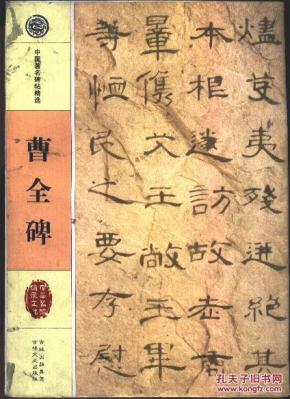 中国著名碑帖精选
曹全碑
燼芟夷殘迸絕其
本根遂訪故老商
量儁艾王敞王畢
等恤民之要存慰
吉林出版集团
吉林文史出版社
孔夫子旧书网